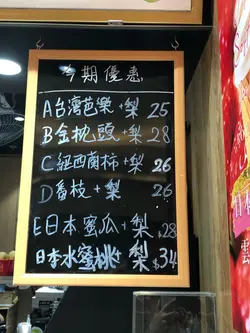 今期優惠
A台灣芭樂+梨 25
B金枕頭+梨 28
C紐西蘭柿+梨 26
D番枝+梨 26
E日本蜜瓜+梨 $28
日本水蜜桃+梨 $34